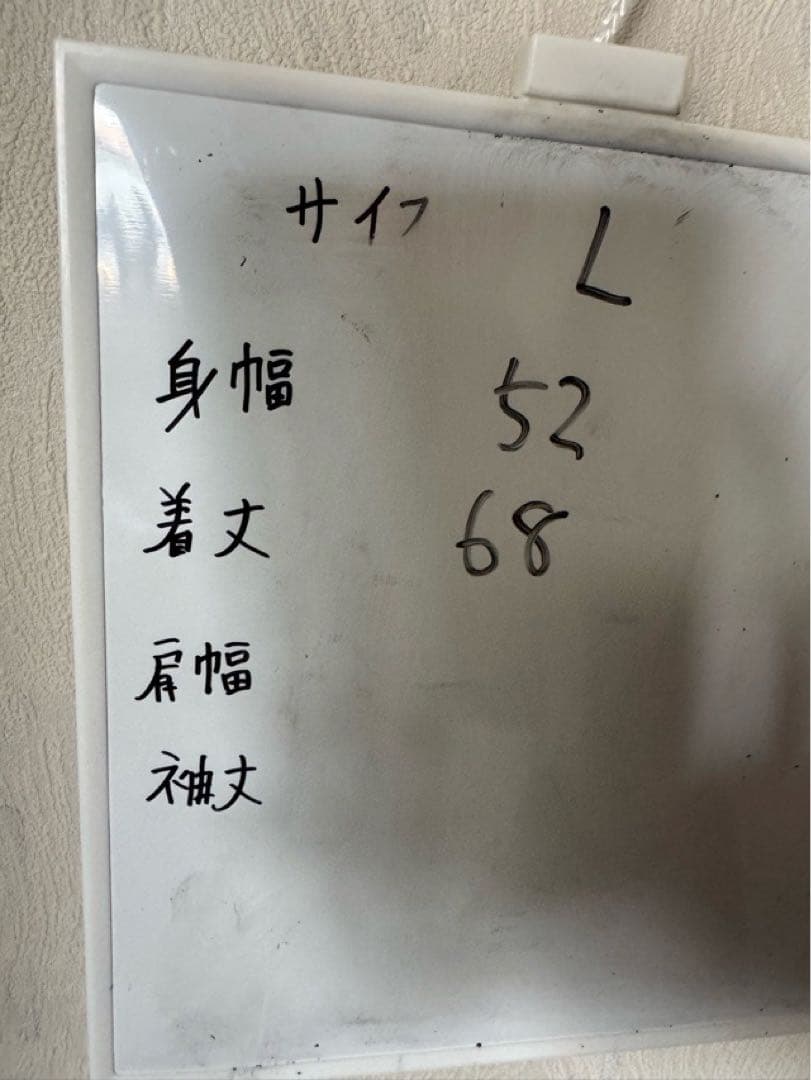 サイフ L
身幅 52
着丈 68
肩幅
袖丈